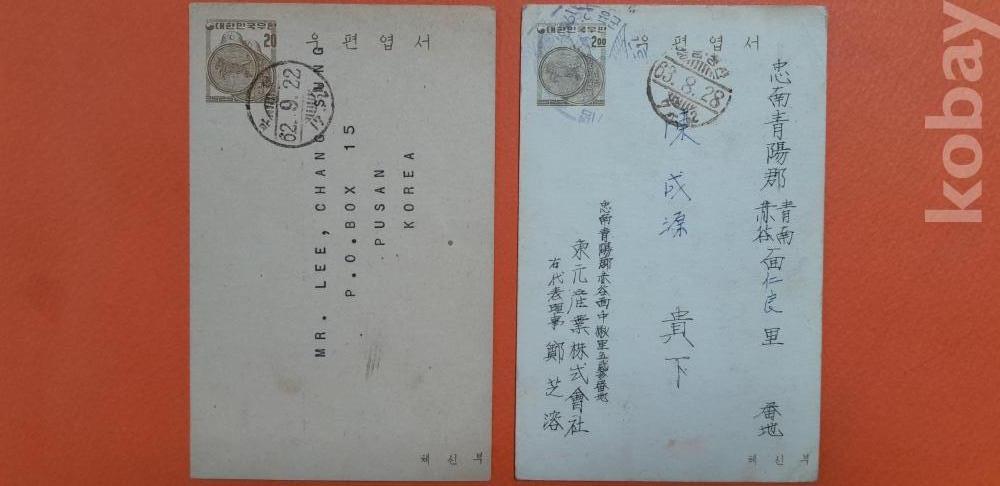 대한민국우편
20
우편엽서
62.9.22
MR. LEE, CHANG SUNG
P.O.BOX 15
PUSAN
KOREA
체신부
대한민국우편
2.00
편엽서
63.8.28
忠南青陽郡
青南
赤谷面仁良里
番地
陳成源 貴下
忠南青陽郡赤谷面中墩里五 番地
東元産業株式會社
右代表理事 鄭芝溶
체신부
kobay